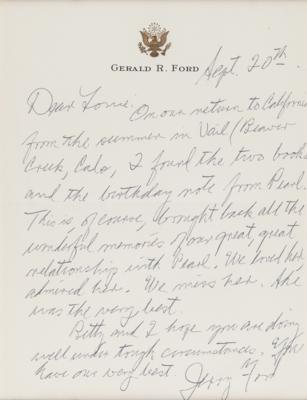 GERALD R. FORD
Sept. 20th.
Dear Lorrie.
On our return to California
from the summer in Vail/Beaver
Creek, Colo, I found the two books
and the birthday note from Pearl.
This is, of course, brought back all the
wonderful memories of our great, great
relationship with Pearl. We loved her
admired her. We miss her. She
was the very best.
Betty and I hope you are doing
well under tough circumstances. You
have our very best.
Jerry Ford